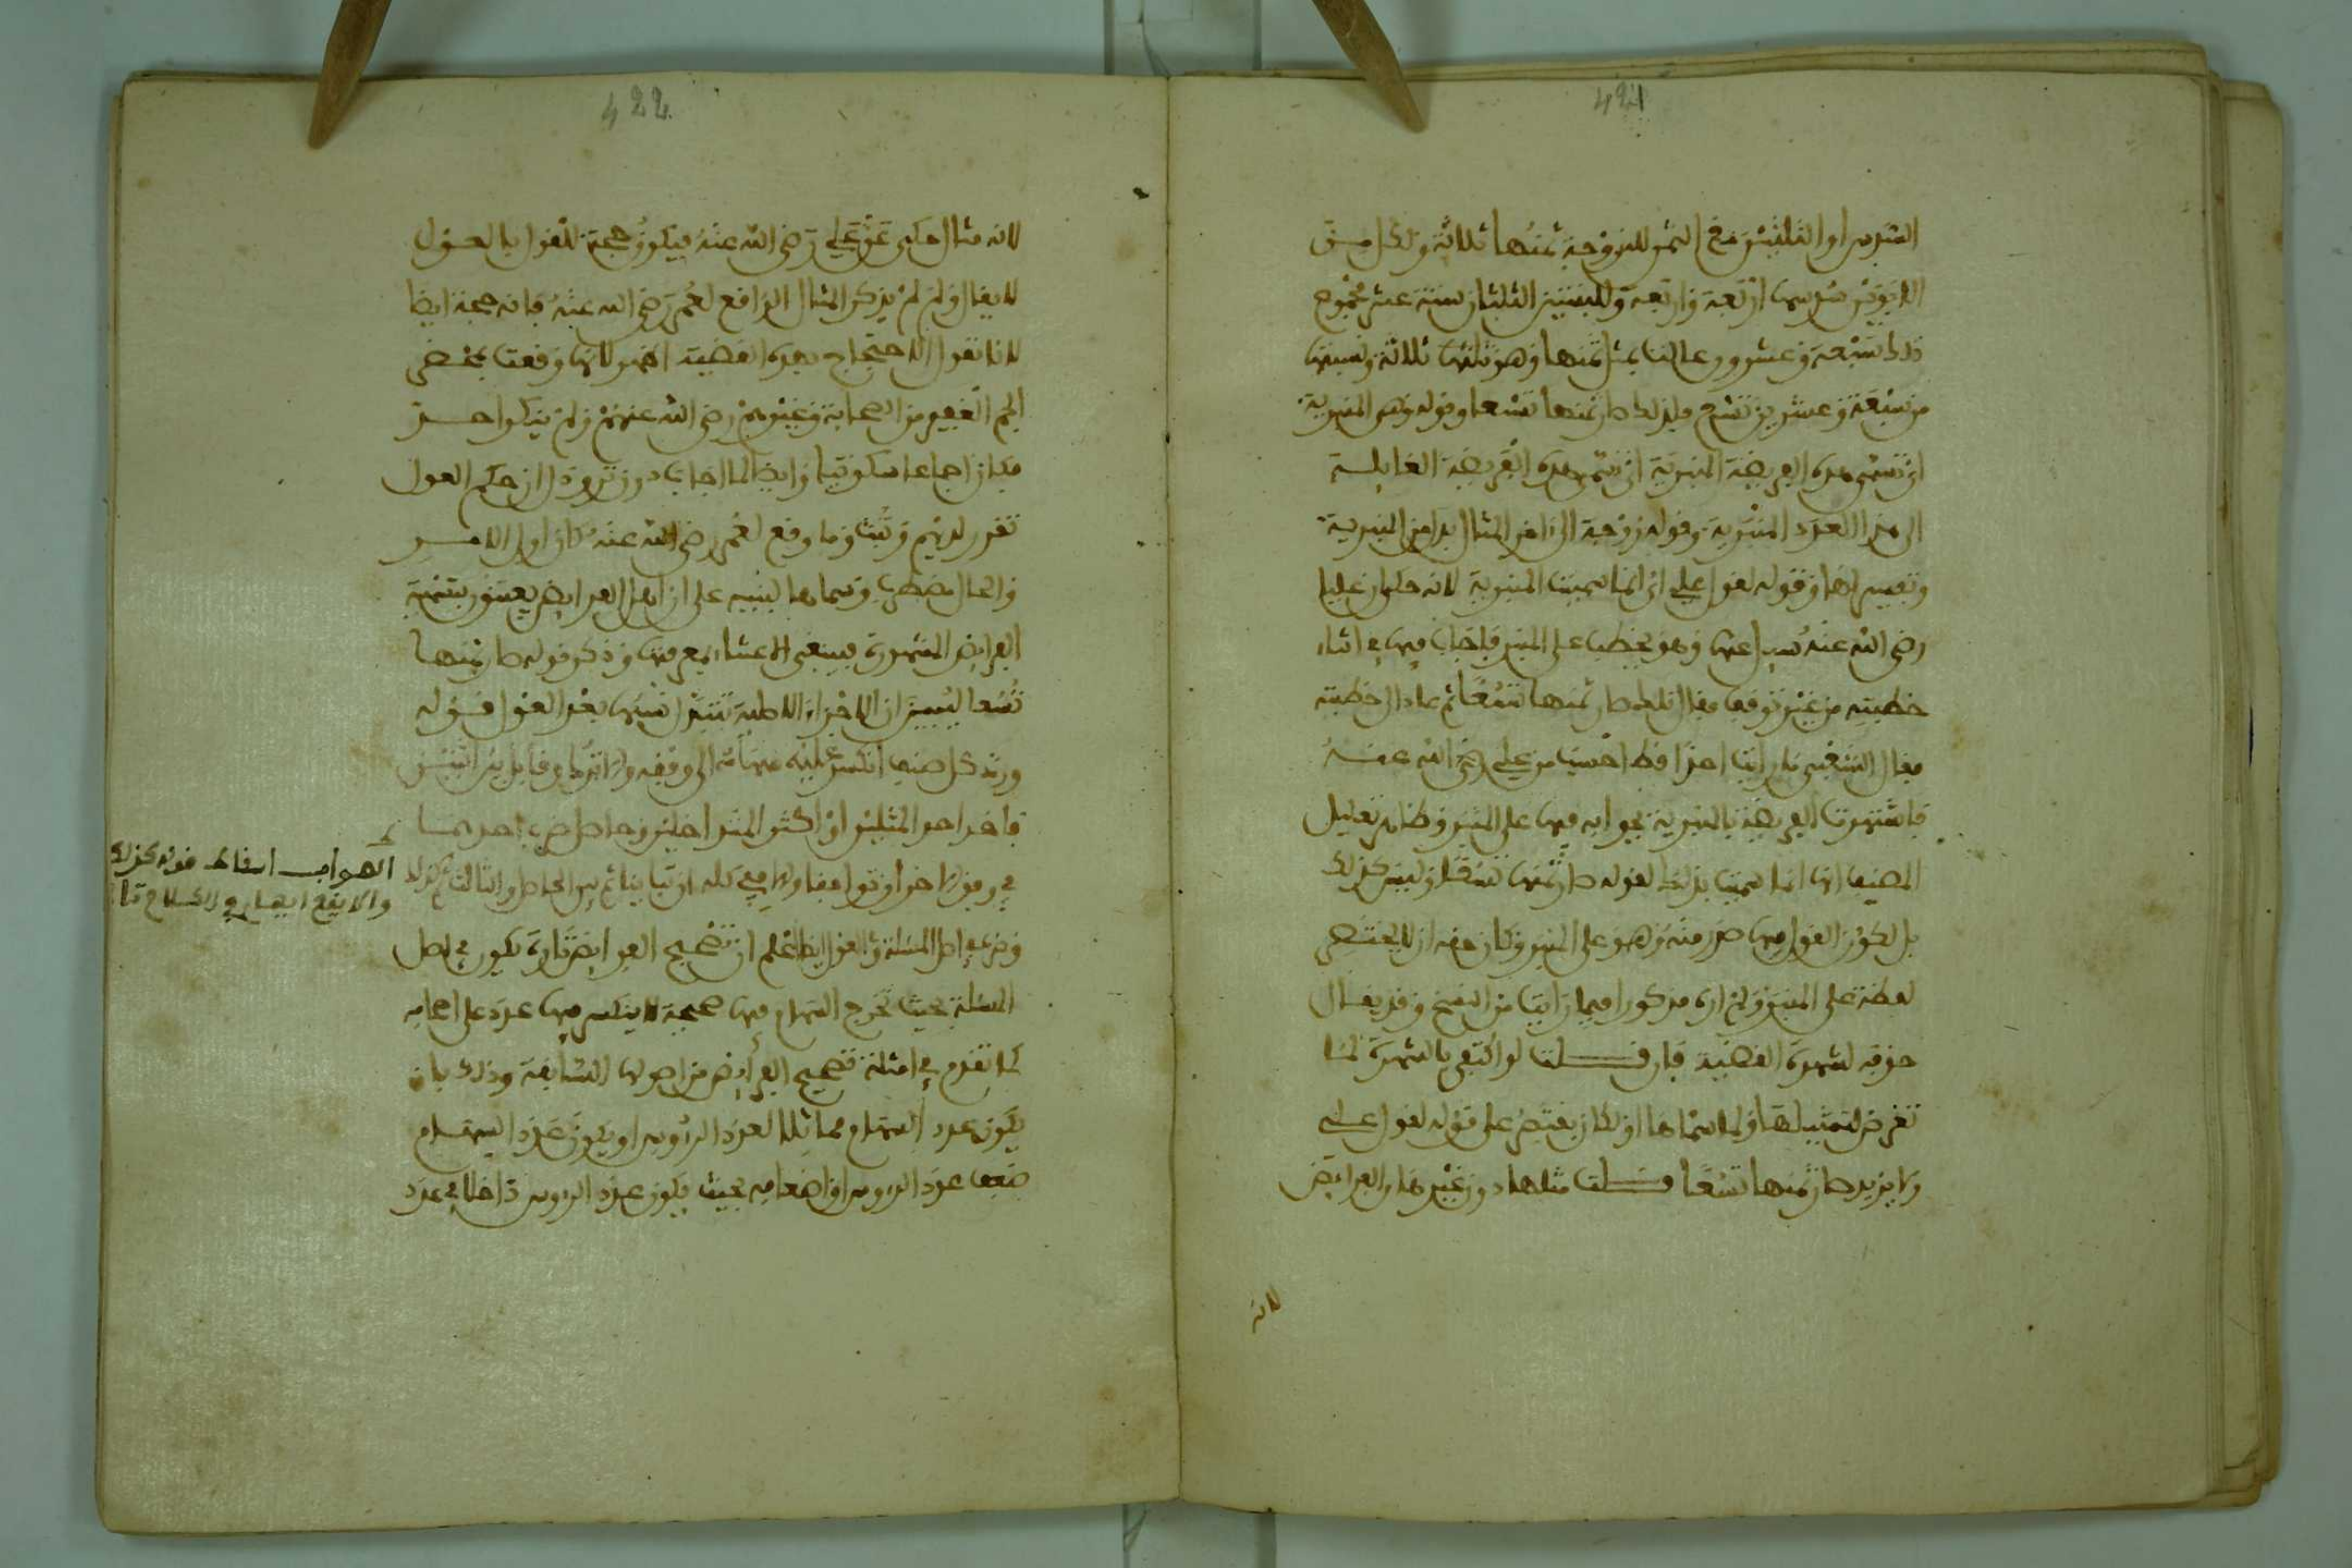 421
السدس او الثلثين مع الثمن للزوجة ثمنها ثلاثة ولكل من
الابوين سدسها اربعة واربعة وللبنتين الثلثان ستة عشر مجموع
ذلك سبعة وعشرون عالت بمثل ثمنها وهو ثلثها ثلاثة ونسبتها
من سبعة وعشرين تسع فلذلك صار ثمنها تسعا وقوله وهي المنبرية
اي تسمى هذه الفريضة المنبرية اي تسمى هذه الفريضة العايلة
الى هذا العدد المنبرية وقوله زوجة الى اخر المثال بدل من المنبرية
وتفسير لها وقوله لقول علي اي انما سميت المنبرية لانه حكى ان عليا
رضي الله عنه سيل عنها وهو يخطب على المنبر فاجاب فيها في اثناء
خطبته من غير توقف فقال للسائل صار ثمنها تسعا ثم عاد الى خطبته
فقال الشعبي ما رايت احدا قط احسب من علي رضي الله عنه
فاشتهرت الفريضة بالمنبرية بجوابه فيها على المنبر وظاهر تعليل
المصنف انها انما سميت بذلك لقوله صار ثمنها تسعا وليس كذلك
بل لكون القول فيها صدر منه وهو على المنبر وكان حقه ان لا يحذف
لفظة على المنبر ولم اره مذكورا فيما رايت من النسخ وقد يقال
حذفه لشهرة القضية فان قلت لو اكتفى بالشهرة لما
تعرض لتمثيلها ولما سماها او لكان يقتصر على قوله لقول علي
ولا يزيد صار ثمنها تسعا قلت مثلها دون غيرها من الفرايض
لانه
422
لانه مثال حكي عن علي رضي الله عنه فيكون حجة للقول بالعول
لا يقال ولم لم يذكر المثال الواقع لعمر رضي الله عنه فانه حجة ايضا
لانا نقول الاحتجاج بهذه القضية اظهر لانها وقعت بمحضر
الجم الغفير من الصحابة وغيرهم رضي الله عنهم ولم ينكر احد
فكان اجماعا سكوتيا وايضا لما اجاب دون ترو دل ان حكم العول
تقرر لديهم وثبت وما وقع لعمر رضي الله عنه كان اول الامر
والحال مضطرب وسماها لينبه على ان اهل الفرايض يعتنون بتسمية
الفرايض المشهورة فينبغي الاعتناء بمعرفتها وذكر قوله صار ثمنها
تسعا ليبين ان الاجزاء الاصلية تتغير نسبتها بعد العول قوله
ورد كل صنف انكسر عليه سهامه الى وفقه والا اترك وقابل بين اثنين
فاخذ احد المثلين او اكثر المتداخلين وحاصل ضرب احدهما
في وفق الاخر ان توافقا والا ففي كله ان تباينا ثم بين الحاصل والثالث ثم كذلك
وضرب في اصل المسئلة والعول ايضا اعلم ان تصحيح الفرايض تارة يكون في اصل
المسئلة بحيث تخرج السهام فيها صحيحة لا ينكسر فيها عدد على اصحابه
كما تقدم في امثلة تصحيح الفرايض من اصولها السابقة وذلك بان
يكون عدد السهام مماثلا لعدد الرؤوس او يكون عدد السهام
ضعف عدد الرؤوس او اضعافه بحيث يكون عدد الرؤوس داخلا في عدد
الصواب اسقاط قوله كذلك
والا يقع